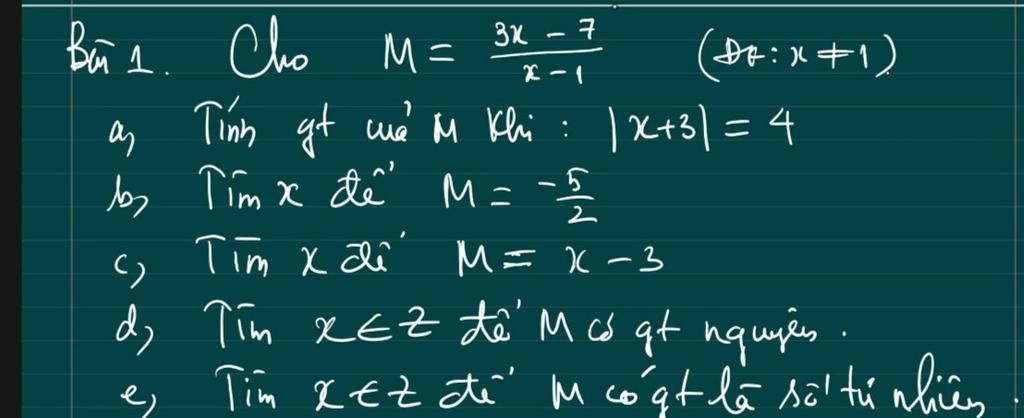 Bài 1. Cho M = (3x - 7)/(x - 1) (ĐK: x ≠ 1)
a, Tính gt của M khi : |x+3| = 4
b, Tìm x để M = -5/2
c, Tìm x để M = x - 3
d, Tìm x ∈ Z để M có gt nguyên.
e, Tìm x ∈ Z để M có gt là số tự nhiên.